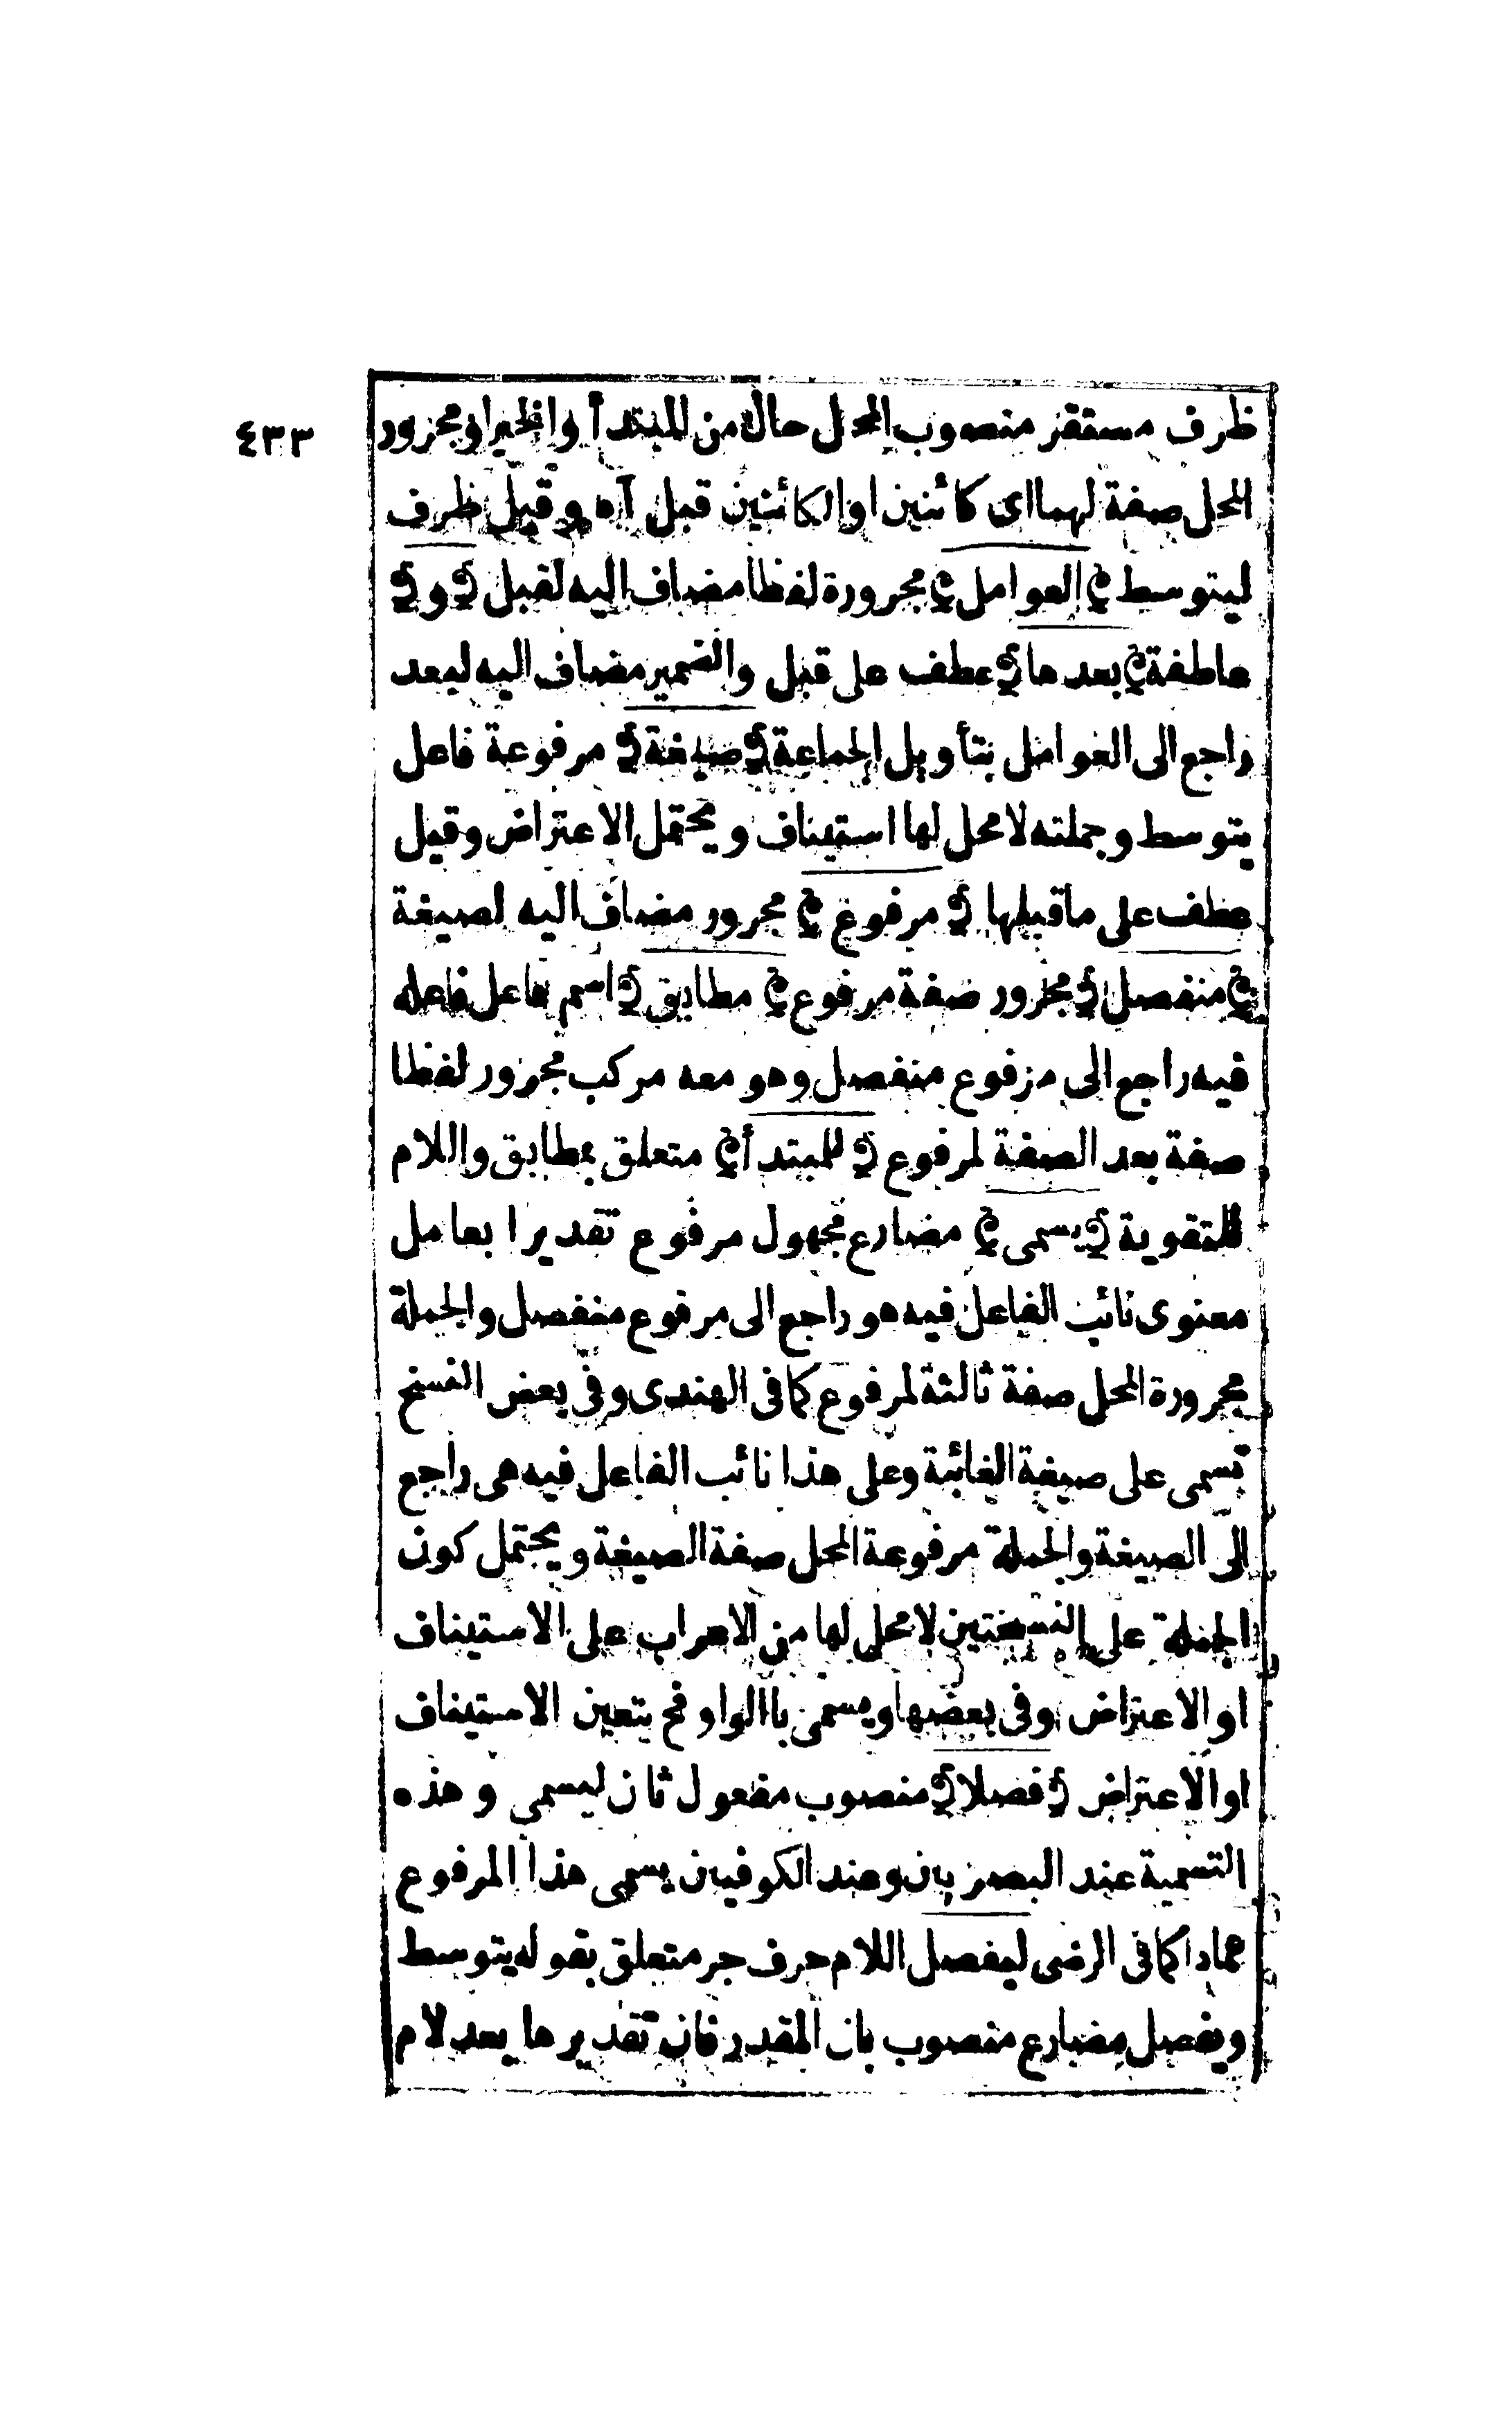 ٤٣٣
ظرف مستقر منصوب المحل حال من المبتدأ والخبر او مجرور
المحل صفة لهما اى كائنين او الكائنين قبل آه وقيل ظرف
ليتوسط ﴿ العوامل ﴾ مجرورة لفظا مضاف اليه لقبل ﴿ و ﴾
عاطفة ﴿ بعدها ﴾ عطف على قبل والضمير مضاف اليه لبعد
راجع الى العوامل بتأويل الجماعة ﴿ صيغة ﴾ مرفوعة فاعل
يتوسط وجملته لا محل لها استيناف ويحتمل الاعتراض وقيل
عطف على ما قبلها ﴿ مرفوع ﴾ مجرور مضاف اليه لصيغة
﴿ منفصل ﴾ مجرور صفة مرفوع ﴿ مطابق ﴾ اسم فاعل فاعله
فيه راجع الى مرفوع منفصل وهو معه مركب مجرور لفظا
صفة بعد الصفة لمرفوع ﴿ للمبتدأ ﴾ متعلق بمطابق واللام
للتقوية ﴿ يسمى ﴾ مضارع مجهول مرفوع تقديرا بعامل
معنوى نائب الفاعل فيه هو راجع الى مرفوع منفصل والجملة
مجرورة المحل صفة ثالثة لمرفوع كما فى الهندى وفى بعض النسخ
تسمى على صيغة الغائبة وعلى هذا نائب الفاعل فيه هى راجع
الى الصيغة والجملة مرفوعة المحل صفة الصيغة ويحتمل كون
الجملة على النسختين لا محل لها من الاعراب على الاستيناف
او الاعتراض وفى بعضها ويسمى باالواو فح يتعين الاستيناف
او الاعتراض ﴿ فصلا ﴾ منصوب مفعول ثان ليسمى وهذه
التسمية عند البصريين وعند الكوفيين يسمى هذا المرفوع
عمادا كما فى الرضى ليفصل اللام حرف جر متعلق بقوله يتوسط
ويفصل مضارع منصوب بان المقدر فان تقديرها بعد لام